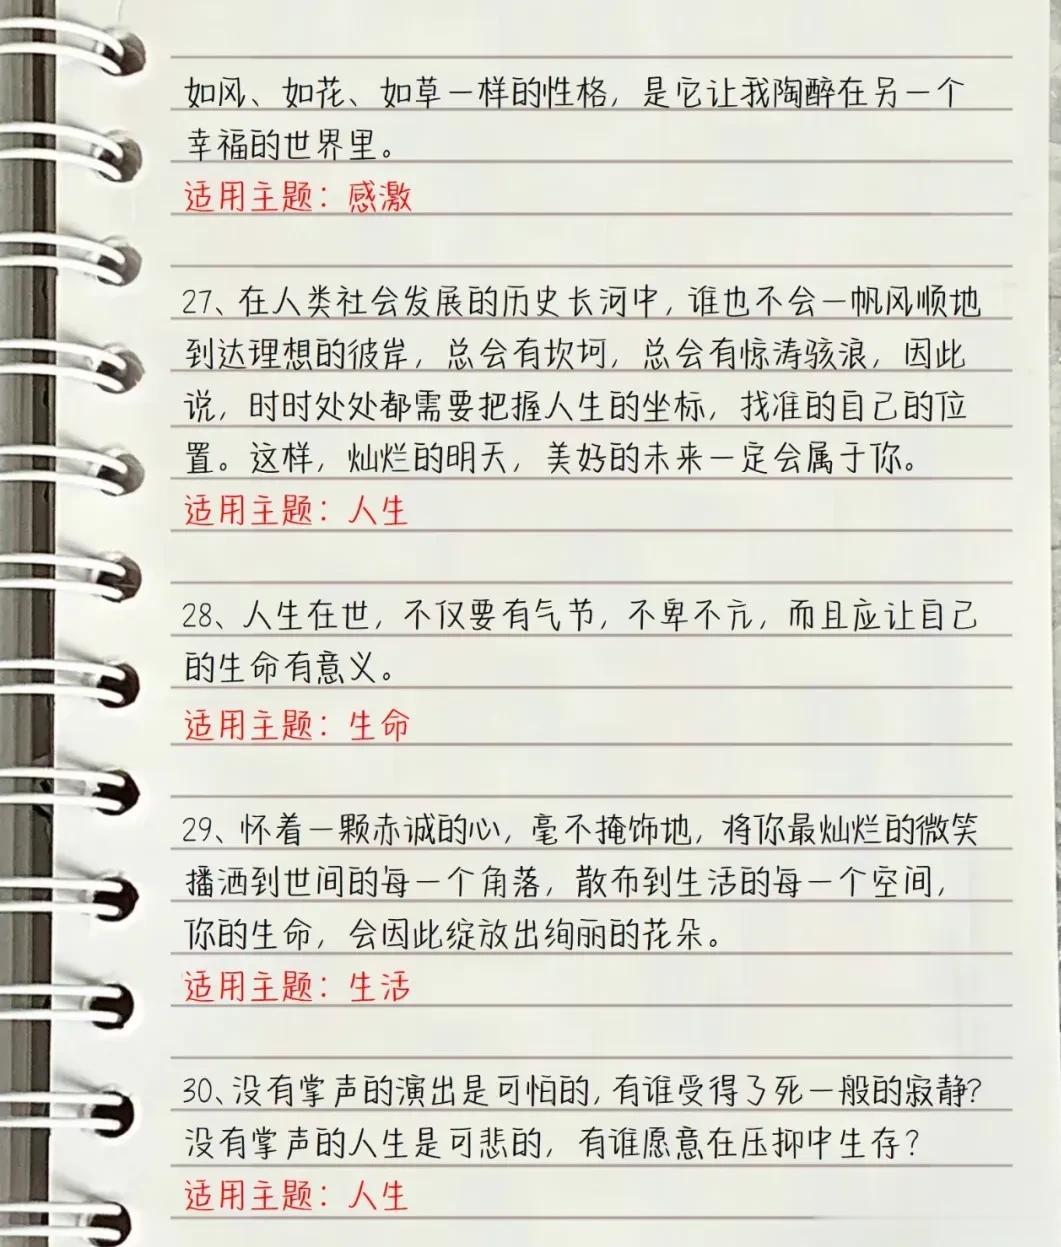 如风、如花、如草一样的性格，是它让我陶醉在另一个
幸福的世界里。
适用主题：感激
27、在人类社会发展的历史长河中，谁也不会一帆风顺地
到达理想的彼岸，总会有坎坷，总会有惊涛骇浪，因此
说，时时处处都需要把握人生的坐标，找准的自己的位
置。这样，灿烂的明天，美好的未来一定会属于你。
适用主题：人生
28、人生在世，不仅要有气节，不卑不亢，而且应让自己
的生命有意义。
适用主题：生命
29、怀着一颗赤诚的心，毫不掩饰地，将你最灿烂的微笑
播洒到世间的每一个角落，散布到生活的每一个空间，
你的生命，会因此绽放出绚丽的花朵。
适用主题：生活
30、没有掌声的演出是可怕的，有谁受得了死一般的寂静?
没有掌声的人生是可悲的，有谁愿意在压抑中生存？
适用主题：人生